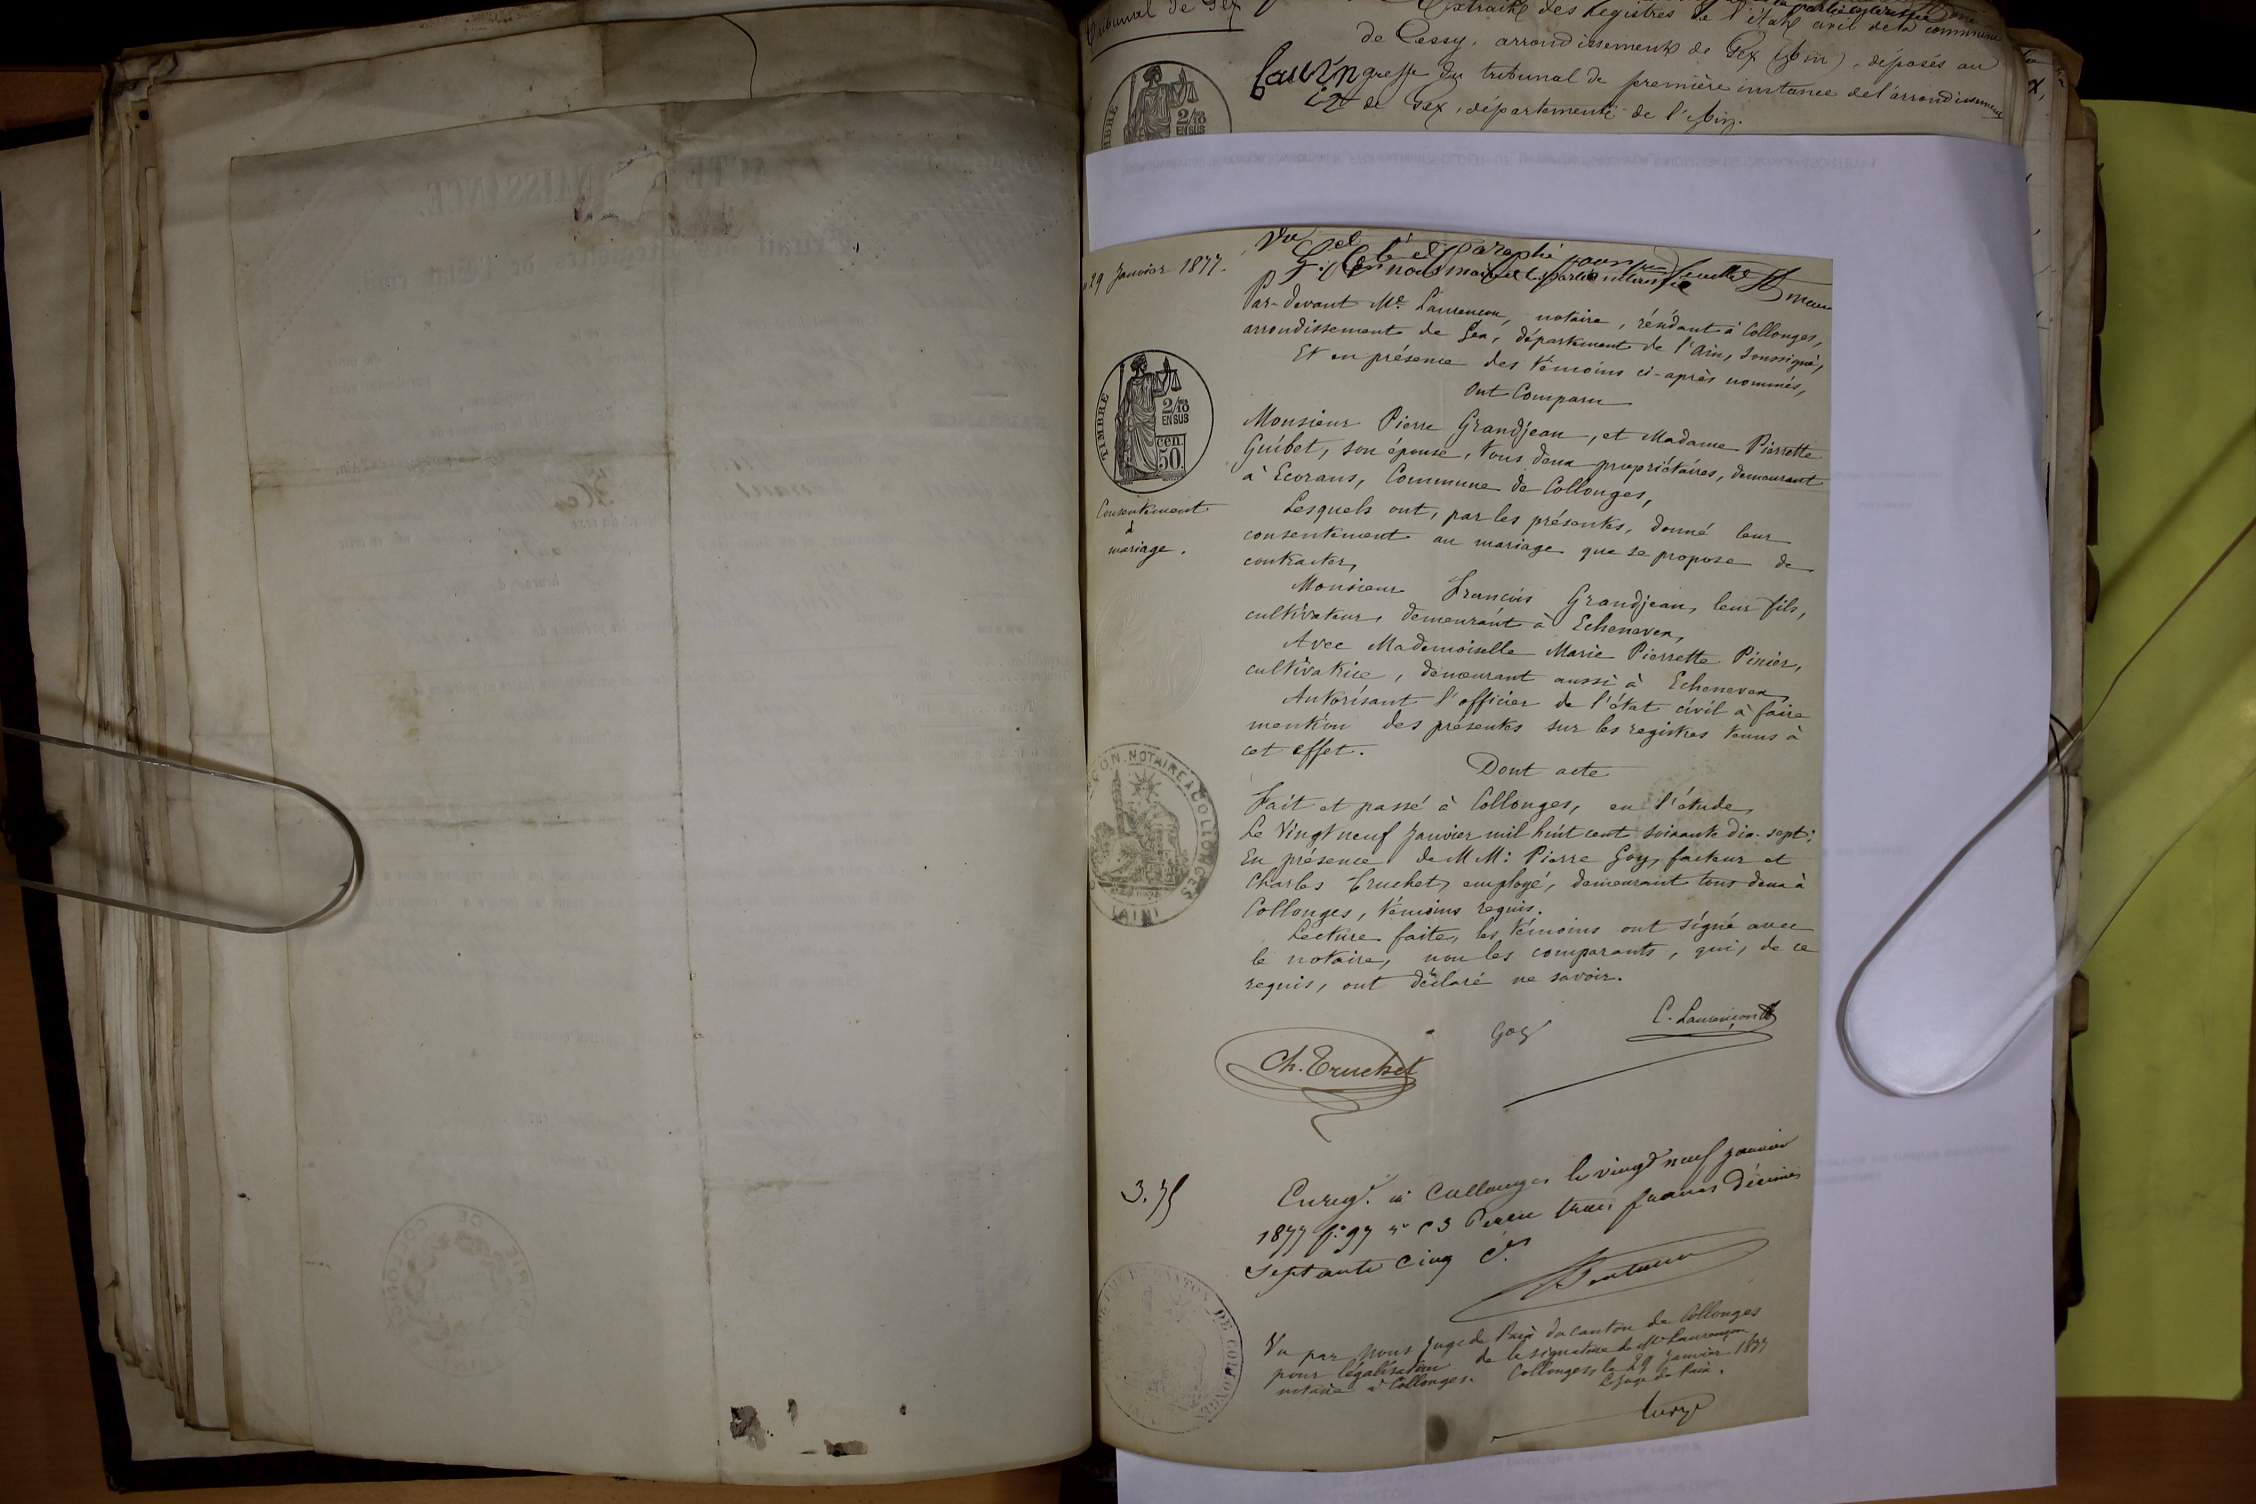 Tribunal de Gex
Extrait des Registres de l'état civil de la commune
de Cessy, arrondissement de Gex (Ain), déposés au
greffe du tribunal de première instance de l'arrondissement
de Gex, département de l'Ain.
TIMBRE
2/10
EN SUS
29 Janvier 1877.
Par-devant Me. Laurençon, notaire, résidant à Collonges,
arrondissement de Gex, département de l'Ain, soussigné,
Et en présence des témoins ci-après nommés,
Ont Comparu
TIMBRE
2/10
EN SUS
cen.
50.
Monsieur Pierre Grandjean, et Madame Pierrette
Guibet, son épouse, tous deux propriétaires, demeurant
à Ecorans, Commune de Collonges,
Consentement
à
mariage.
Lesquels ont, par les présentes, donné leur
consentement au mariage que se propose de
contracter,
Monsieur François Grandjean, leur fils,
cultivateur, demeurant à Echenevex,
Avec Mademoiselle Marie Pierrette Pinier,
cultivatrice, demeurant aussi à Echenevex,
Autorisant l'officier de l'état civil à faire
mention des présentes sur les registres tenus à
cet effet.
Dont acte
Fait et passé à Collonges, en l'étude,
Le Vingt neuf Janvier mil huit cent soixante dix-sept;
En présence de MM: Pierre Goy, facteur et
Charles Truchet, employé, demeurant tous deux à
Collonges, témoins requis.
Lecture faite, les témoins ont signé avec
le notaire, non les comparants, qui, de ce
requis, ont déclaré ne savoir.
NOTAIRE À COLLONGES
(AIN)
Goy
C. Laurençon
Ch. Truchet
3.75
Enregt. à Collonges le vingt neuf janvier
1877 fo. 97 ro c 3 Perçu trois francs décimes
septante cinq cs.
Vu par nous Juge de Paix du canton de Collonges
pour légalisation de la signature de Me Laurençon
notaire à Collonges. Collonges, le 29 Janvier 1877
Le Juge de Paix.
CANTON DE COLLONGES